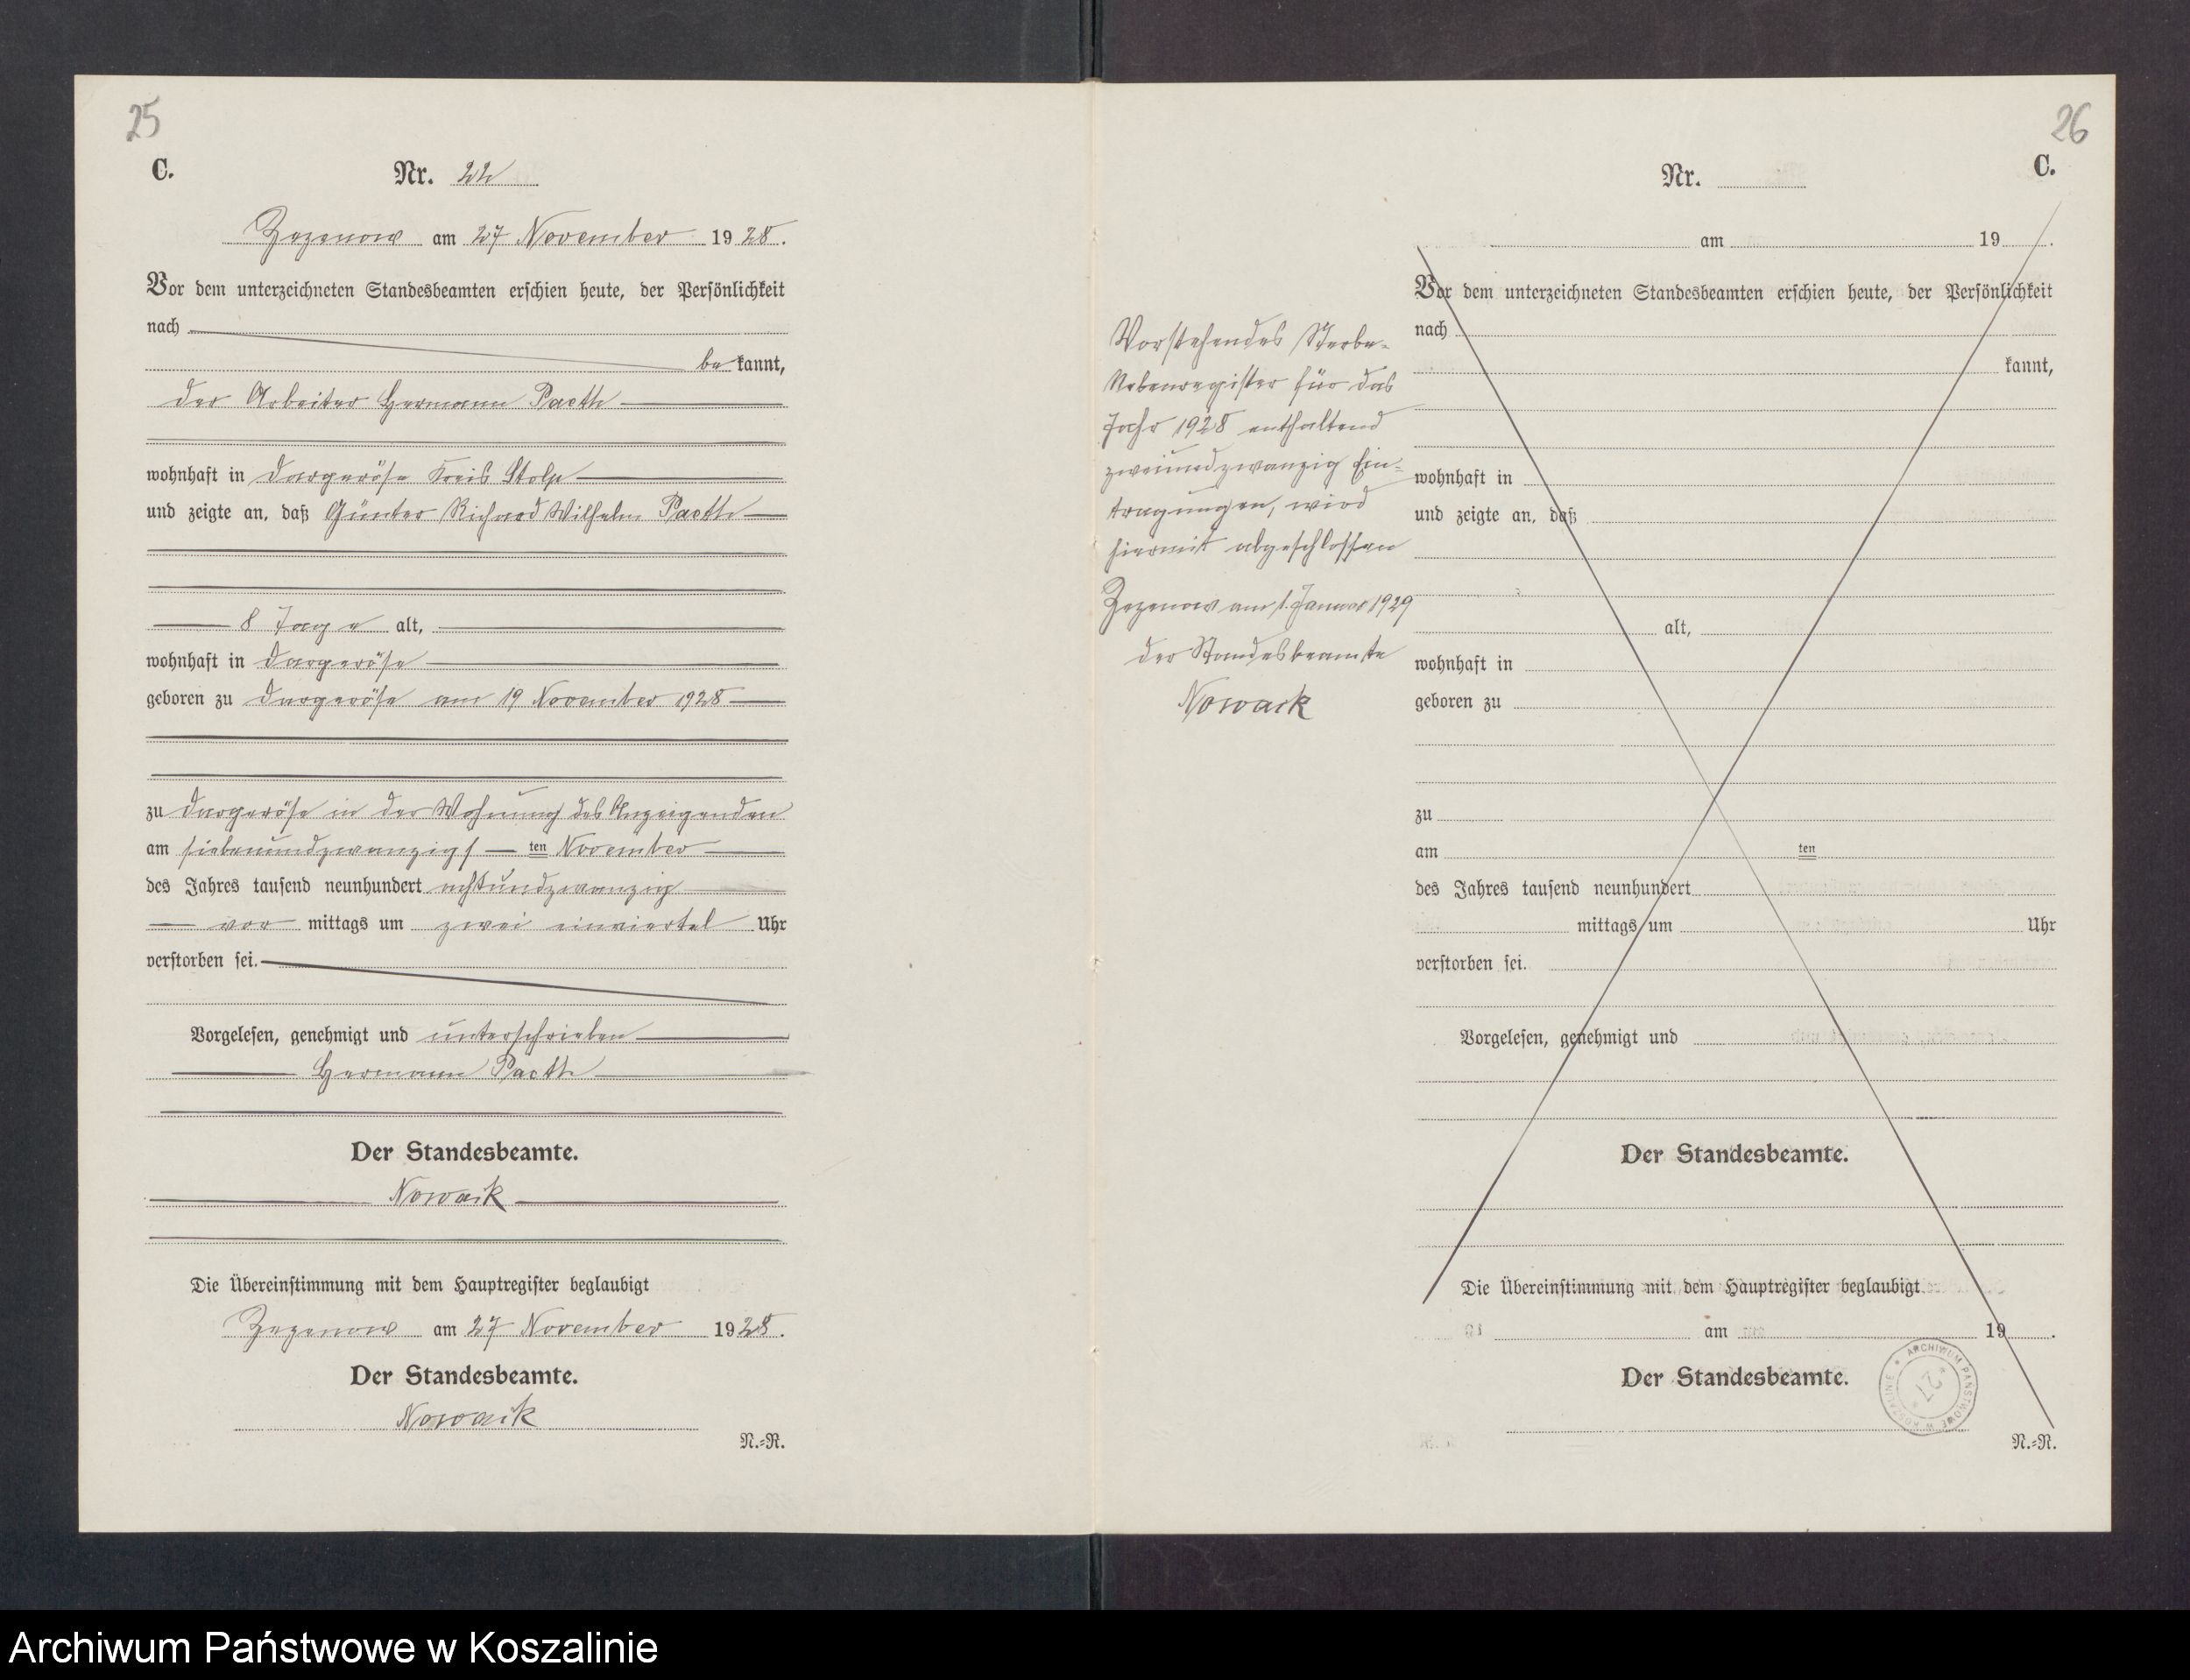 25
C. Nr. 22
Zezenow am 27 November 1928.
Vor dem unterzeichneten Standesbeamten erschien heute, der Persönlichkeit
nach
bekannt,
der Arbeiter Hermann Paeth
wohnhaft in Dargeröse Kreis Stolp
und zeigte an, daß Günter Richard Wilhelm Paeth
8 Tage alt,
wohnhaft in Dargeröse
geboren zu Dargeröse am 19 November 1928
zu Dargeröse in der Wohnung des Anzeigenden
am siebenundzwanzigs ten November
des Jahres tausend neunhundert achtundzwanzig
vor mittags um zwei einviertel Uhr
verstorben sei.
Vorgelesen, genehmigt und unterschrieben
Hermann Paeth
Der Standesbeamte.
Nowack
Die Übereinstimmung mit dem Hauptregister beglaubigt
Zezenow am 27 November 1928.
Der Standesbeamte.
Nowack
N.=R.
Vorstehendes Sterbe-
Nebenregister für das
Jahr 1928 enthaltend
zweiundzwanzig Ein-
tragungen, wird
hiermit abgeschlossen
Zezenow am 1. Januar 1929
der Standesbeamte
Nowack
26
Nr. C.
am 19 .
Vor dem unterzeichneten Standesbeamten erschien heute, der Persönlichkeit
nach
kannt,
wohnhaft in
und zeigte an, daß
alt,
wohnhaft in
geboren zu
zu
am ten
des Jahres tausend neunhundert
mittags um Uhr
verstorben sei.
Vorgelesen, genehmigt und
Der Standesbeamte.
Die Übereinstimmung mit dem Hauptregister beglaubigt
am 19 .
Der Standesbeamte.
ARCHIWUM PAŃSTWOWE W KOSZALINIE
27
N.=R.
Archiwum Państwowe w Koszalinie